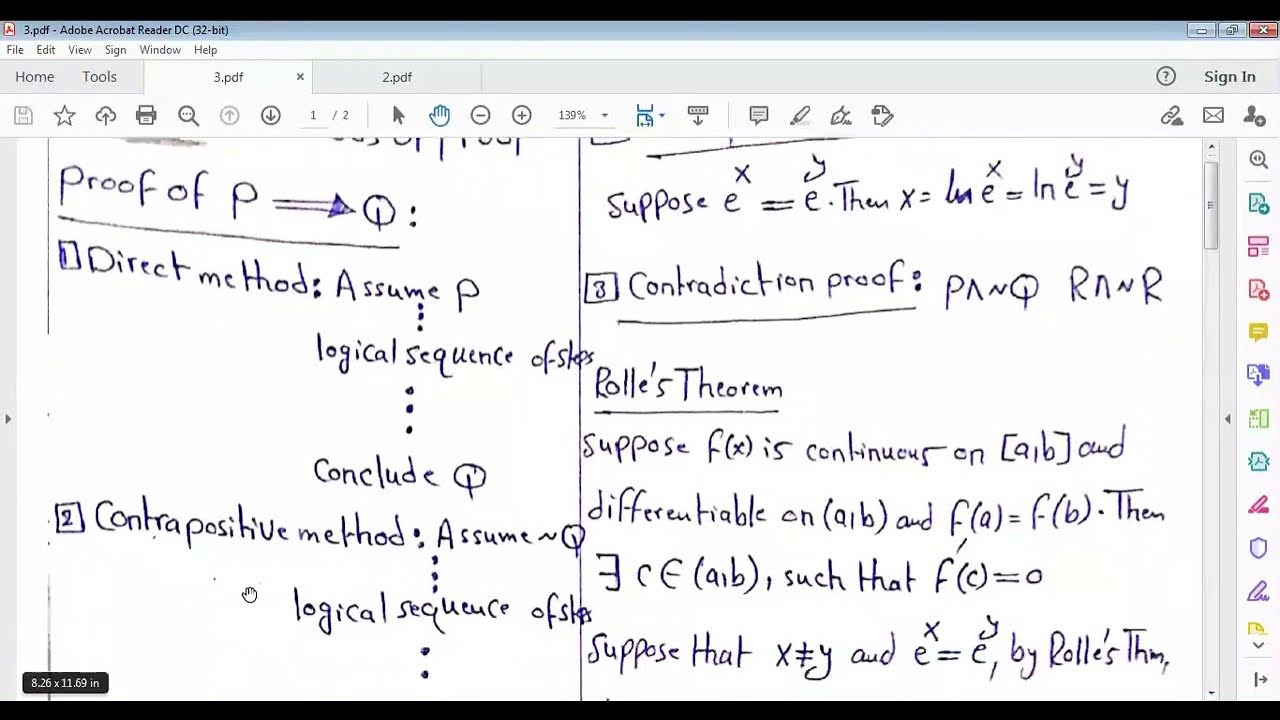 3.pdf - Adobe Acrobat Reader DC (32-bit)
File Edit View Sign Window Help
Home Tools 3.pdf × 2.pdf Sign In
1 / 2 139%
Proof of P ⟹ Q :
1 Direct method: Assume P
logical sequence of steps
Conclude Q
2 Contrapositive method: Assume ~Q
logical sequence of steps
Suppose e^x = e^y. Then x = ln e^x = ln e^y = y
3 Contradiction proof: P∧~Q R∧~R
Rolle's Theorem
Suppose f(x) is continuous on [a,b] and
differentiable on (a,b) and f(a) = f(b). Then
∃ c ∈ (a,b), such that f'(c) = 0
Suppose that x≠y and e^x = e^y, by Rolle's Thm,
8.26 x 11.69 in